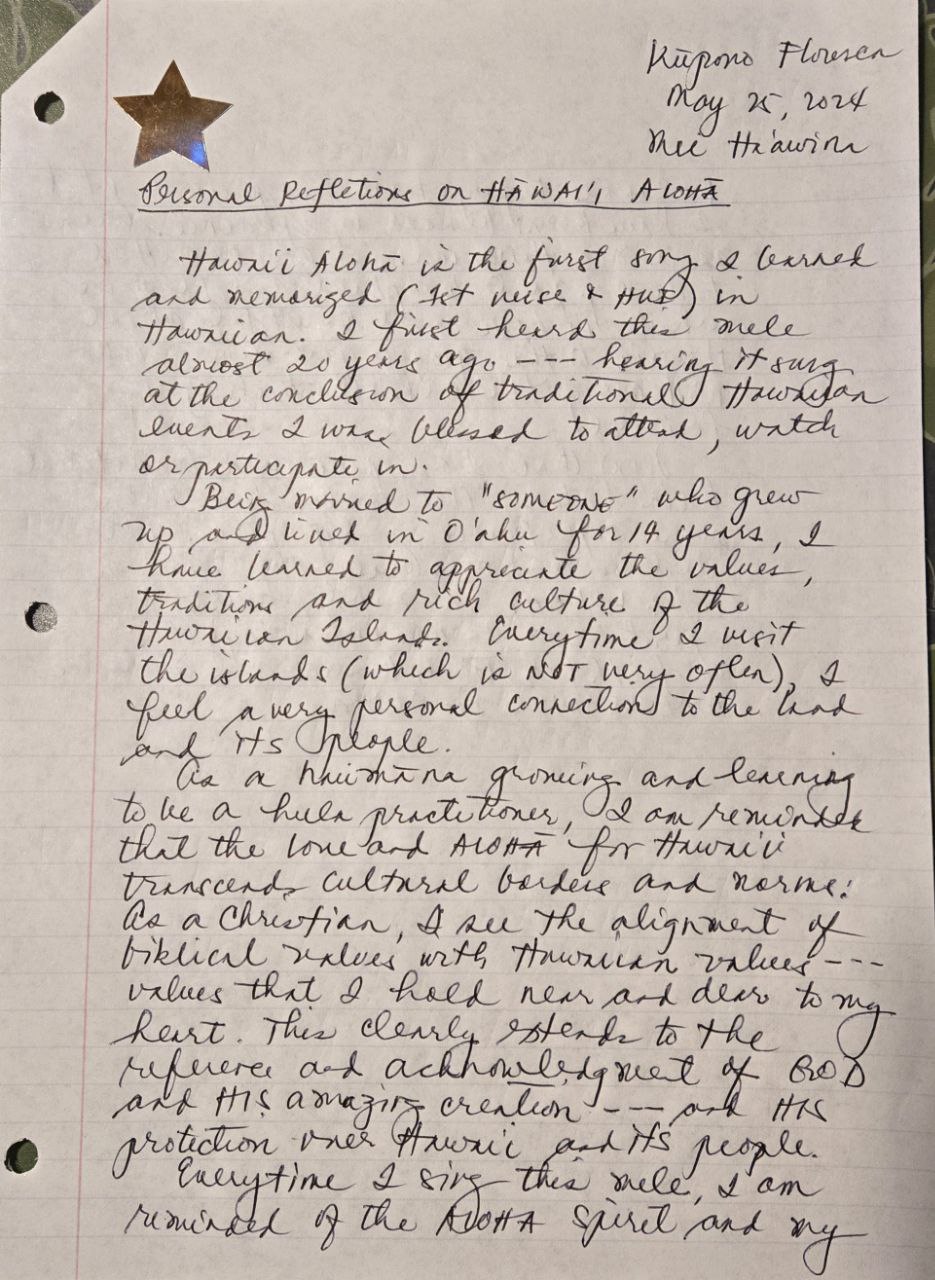 Kūpono
May 25, 2024
Mele Ha'awina
Personal Refletions on HĀWAI'I ALOHĀ
Hawai'i Alohā is the first song I learned
and memorized (1st verse & HUI) in
Hawaiian. I first heard this mele
almost 20 years ago --- hearing it sung
at the conclusion of traditional Hawaiian
events I was blessed to attend, watch
or participate in.
Being married to "SOMEONE" who grew
up and lived in O'ahu for 14 years, I
have learned to appreciate the values,
traditions and rich culture of the
Hawaiian Islands. Everytime I visit
the islands (which is NOT very often), I
feel a very personal connection to the land
and its people.
As a haumāna growing and learning
to be a hula practitioner, I am reminded
that the love and ALOHĀ for Hawai'i
transcends cultural borders and norms.
As a Christian, I see the alignment of
biblical values with Hawaiian values ---
values that I hold near and dear to my
heart. This clearly extends to the
reference and acknowledgment of GOD
and HIS amazing creation --- and HIS
protection over Hawai'i and its people.
Everytime I sing this mele, I am
reminded of the ALOHA spirit and my